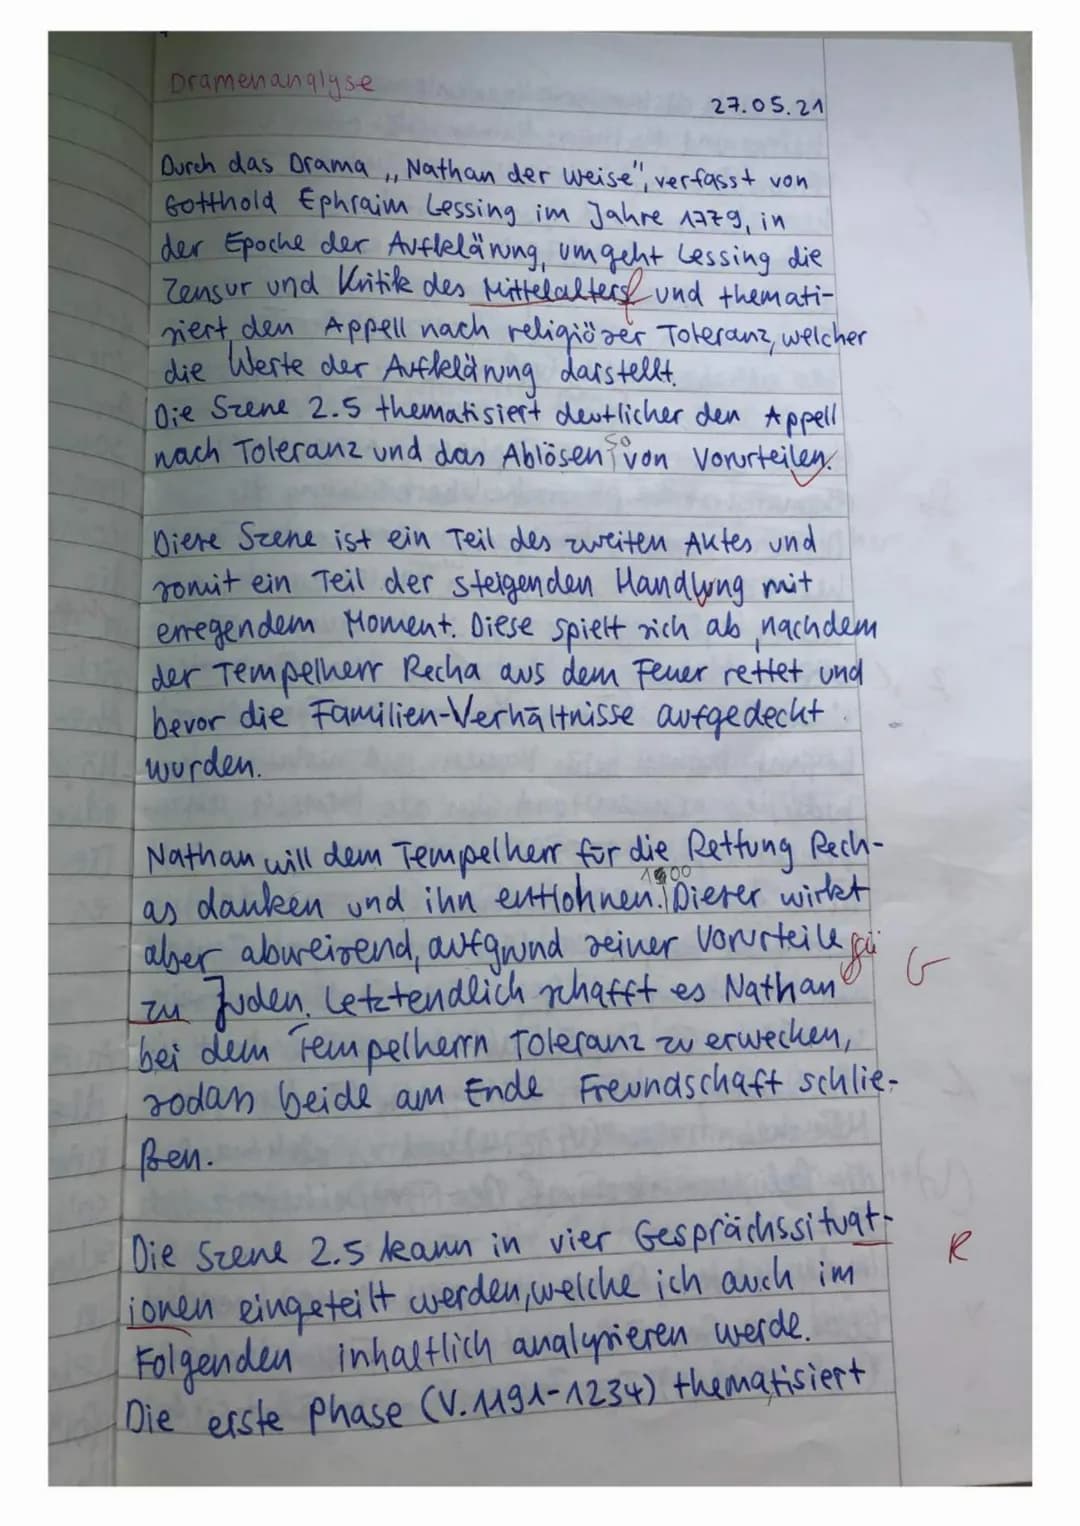 Dramenanalyse
27.05.21
Durch das Drama „Nathan der Weise", verfasst von
Gotthold Ephraim Lessing im Jahre 1779, in
der Epoche der Aufklärung, umgeht Lessing die
Zensur und Kritik des Mittelalters und themati-
siert den Appell nach religiöser Toleranz, welcher
die Werte der Aufklärung darstellt.
Die Szene 2.5 thematisiert deutlicher den Appell
nach Toleranz und das Ablösen von Vorurteilen.
50
Diese Szene ist ein Teil des zweiten Aktes und
somit ein Teil der steigenden Handlung mit
erregendem Moment. Diese spielt sich ab, nachdem
der Tempelherr Recha aus dem Feuer rettet und
bevor die Familien-Verhältnisse aufgedeckt
wurden.
Nathan will dem Tempelherr für die Rettung Rech-
as danken und ihn entlohnen. Dieser wirkt
100
aber abweisend, aufgrund seiner Vorurteile
zu Juden. Letztendlich schafft es Nathan
G
bei dem Tempelherrn Toleranz zu erwecken,
sodass beide am Ende Freundschaft schlie-
ßen.
Die Szene 2.5 kann in vier Gesprächssituat-
R
ionen eingeteilt werden, welche ich auch im
Folgenden inhaltlich analysieren werde.
Die erste Phase (V.1191-1234) thematisiert